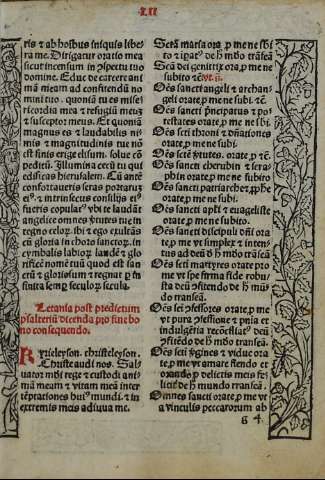 LII
ris & ab hostibus iniquis libe
ra me. Dirigatur oratio mea
sicut incensum in cōspectu tuo
domine. Educ de carcere ani
mam meam ad confitendū no
mini tuo. quoniā tu es miseri
cordia mea & refugiū meum
& susceptor meus. Et quoniā
magnus es & laudabilis ni
mis & magnitudinis tue nō
est finis erige elisum. solue cō
peditū. Illumina cecū tu qui
edificas hierusalem. Cū ante
confortaueris seras portarū
ei⁹. & intrinsecus consilijs ei⁹
fueris copulat⁹ vbi te laudāt
angelice omnes v̄tutes tue in
regno celoꝝ. ibi & ego exultās
cū gloria in choro sanctoꝝ. in
cymbalis labioꝝ laudē & glo
rificē nomē tuū quod est san
ctū & gloriosum & regnat ꝑ in
finita semꝑ seculoꝝ. secula.
Letania post predictum
psalteriū dicenda pro fine bo
no consequendo.
Kyrieleyson. christeleyson.
Christe audi nos. Sal
uator mūdi rege & custodi ani
mā meam & vitam meā inter
tēptationes hui⁹ mundi. & in
extremis meis adiuua me.
Sctā maria ora ꝓ me ne sbi
to & īparat⁹ de h̄ mūdo trāseā
Scā dei genitrix ora ꝓ me ne
subito &c̄.
Oēs sancti angeli & archan
geli orate ꝓ me ne subi. &c̄.
Oēs sancti principatus & po
testates orate ꝓ me ne subi.
Oēs scti throni & dn̄ationes
orate ꝓ me ne subi.
Oēs sancte v̄tutes. orate ꝓ &c̄.
Oēs sancti cherubin & sera
phin orate ꝓ me ne subito
Oēs sancti patriarche & ꝓphe
orate ꝓ me ne subito.
Oēs sancti apłi & euāgeliste
orate ꝓ me ne subito.
Oēs sancti discipuli dn̄i orate
ꝓ me vt simplex & inten
tus ad deū
Oēs scti martyres orate pro
me vt ꝓfirma fide robu
sta
dū transeā.
Oēs sci ꝯfessores orate ꝓ me
vt pura ꝯfessione & pnīa et
indulgētia recōciliat⁹ deū
Oēs scte v̄gines & vidue ora
te ꝓ me vt
orando ꝓ delictis meis fe
licit̄ de h̄ mundo transeā.
Omnes sancti orate ꝓ me vt
a vinculis peccatorum ab
g 4